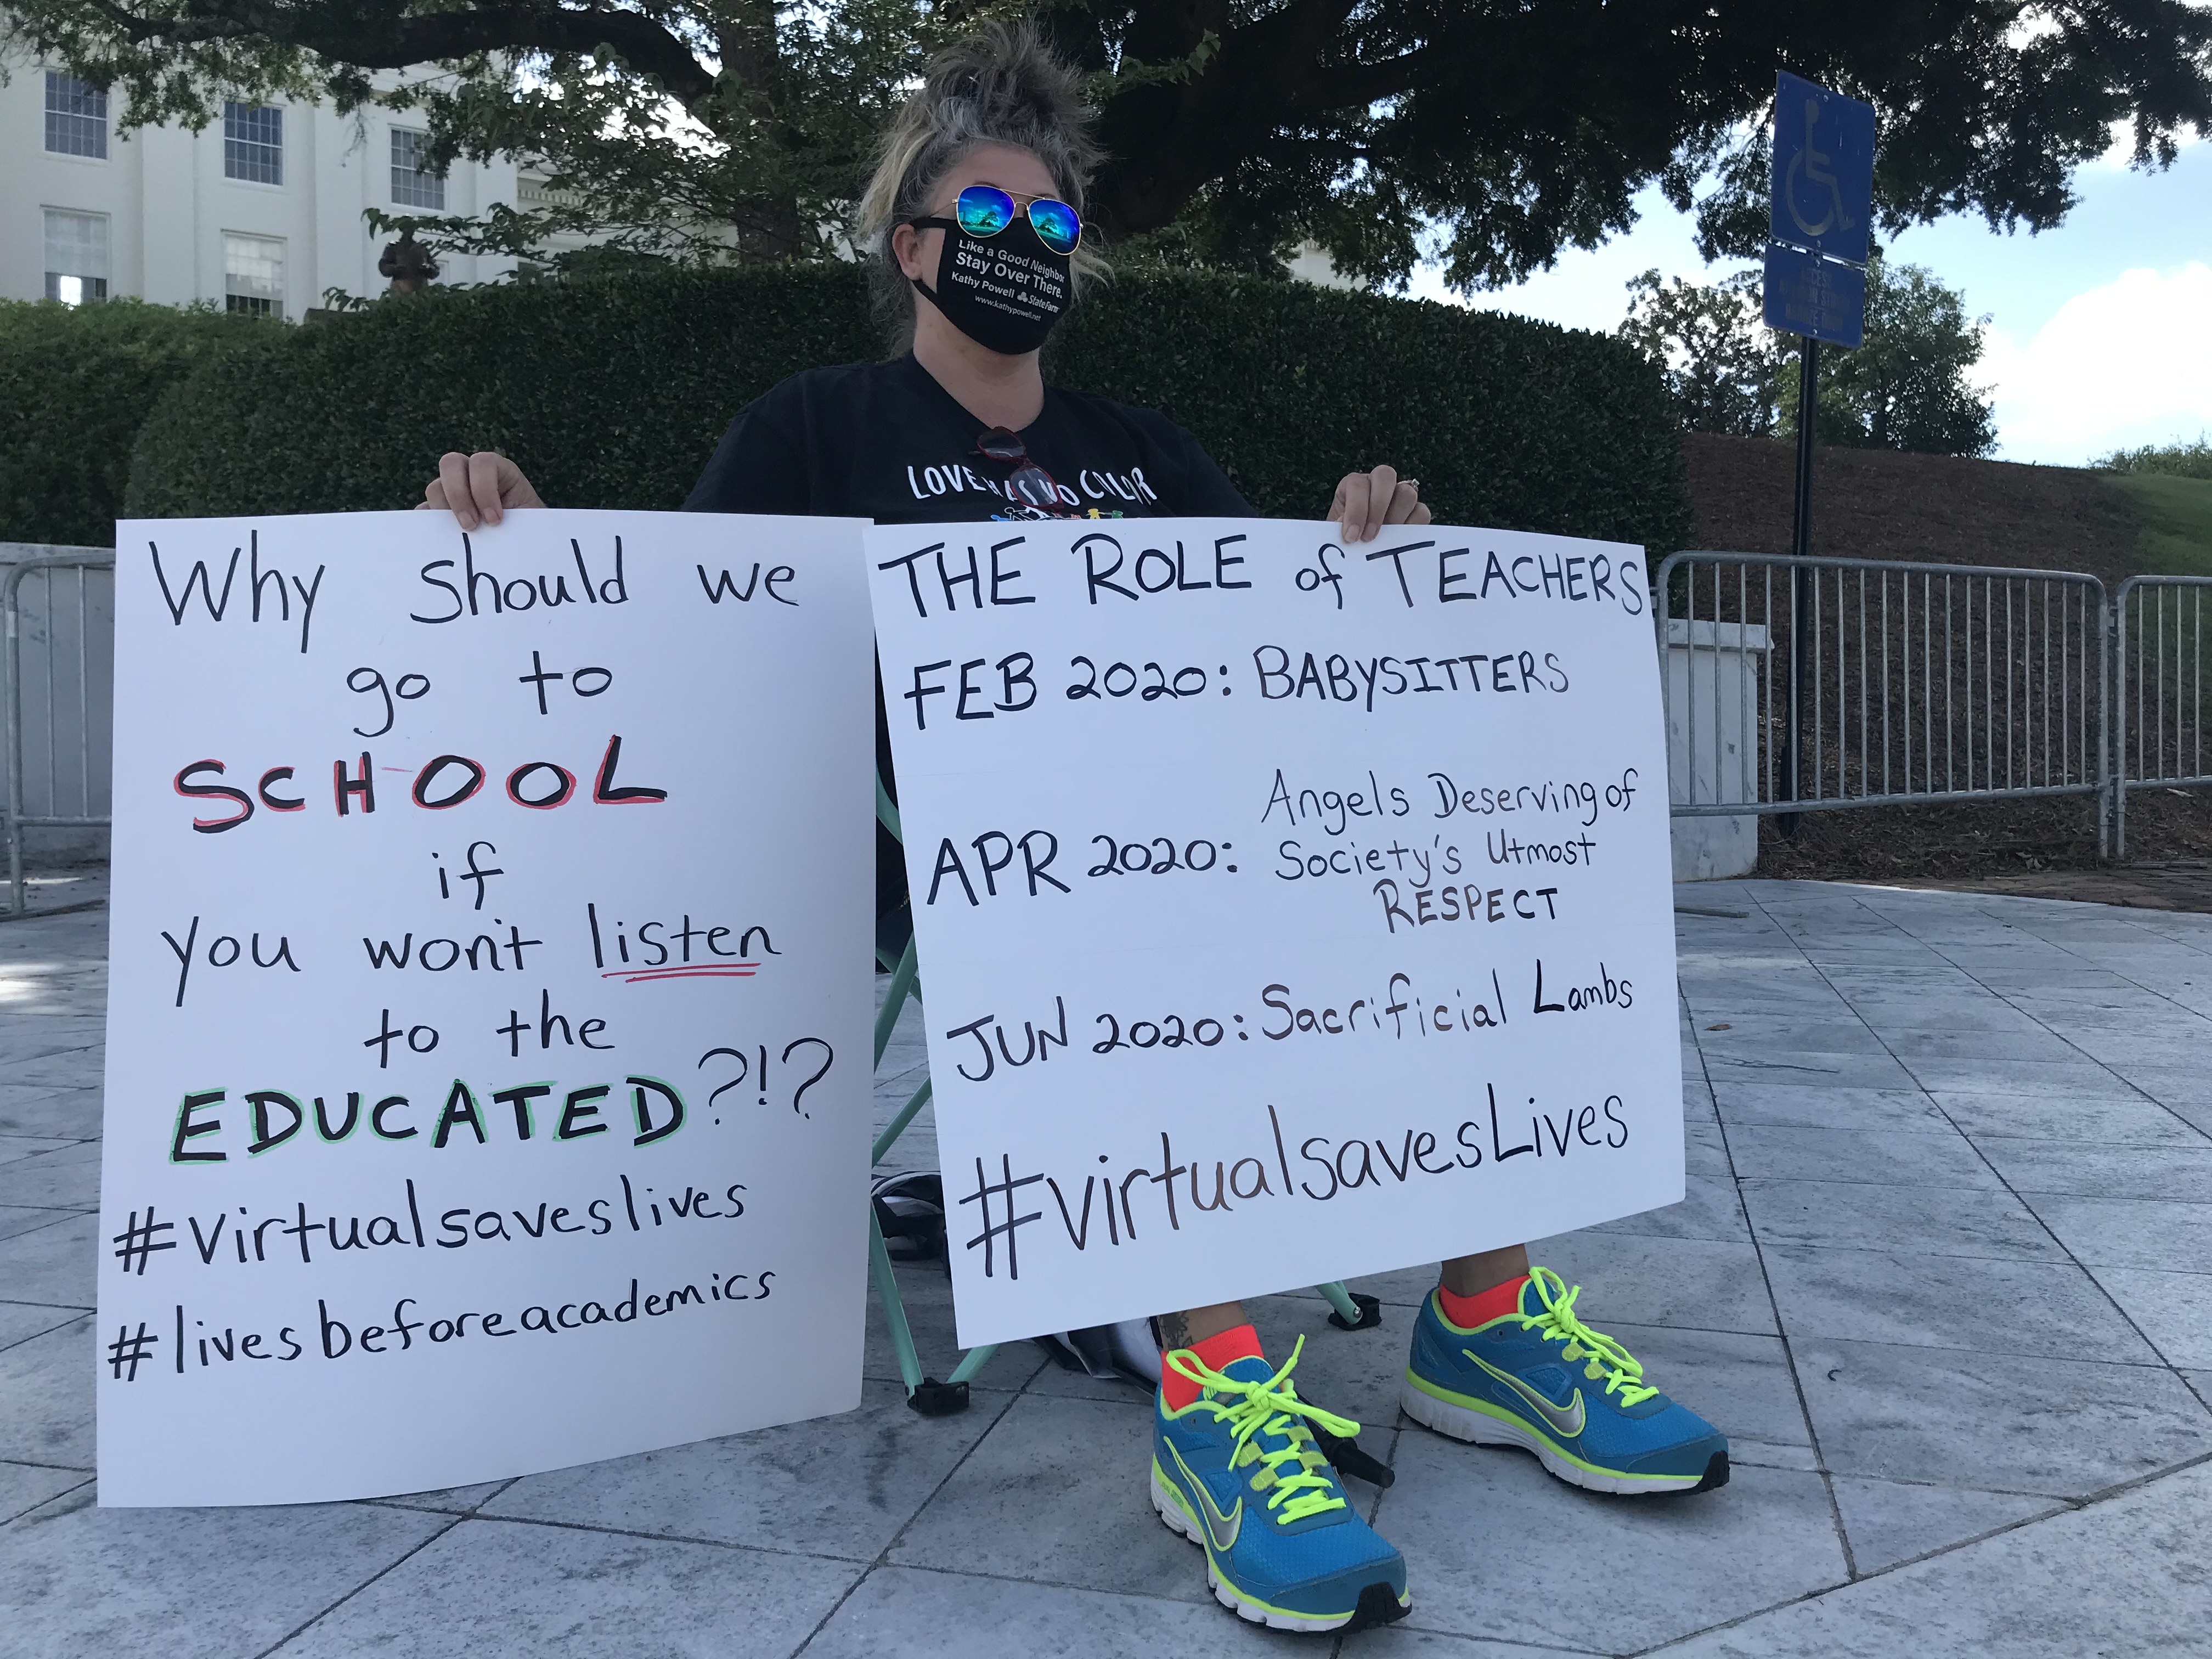 Like a Good Neighbor
Stay Over There.
Kathy Powell StateFarm
www.kathypowell.net
LOVE HAS NO COLOR
Why should we
go to
SCHOOL
if
you won't listen
to the
EDUCATED?!?
#virtualsaveslives
#livesbeforeacademics
THE ROLE of TEACHERS
FEB 2020: BABYSITTERS
Angels Deserving of
APR 2020: Society's Utmost
RESPECT
JUN 2020: Sacrificial Lambs
#virtualsavesLives